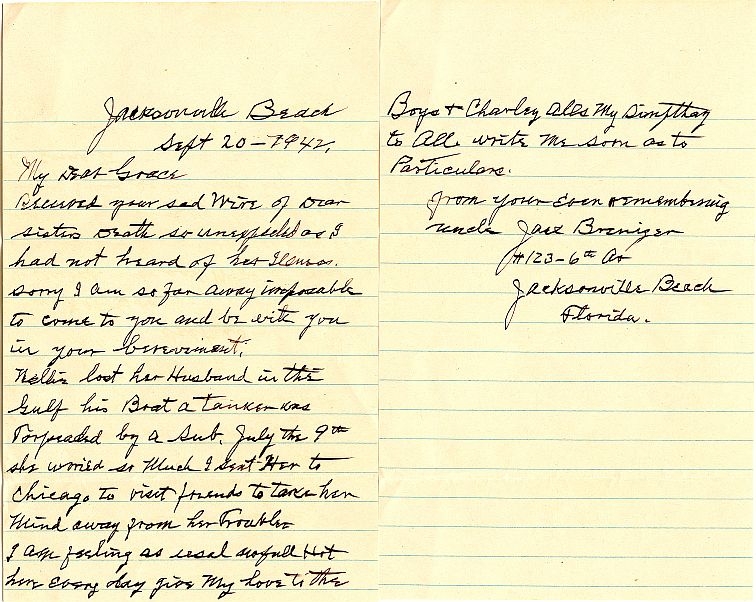 Jacksonville Beach
Sept 20-1942.
My Dear Grace
Received your sad Wire of Dear
sister Death so unexpected as I
had not heard of her Illness.
sorry I am so far away imposable
to come to you and be with you
in your bereviment.
Nellie lost her Husband in the
Gulf his Boat a tanker was
Torpeaded by a Sub. July the 9th
she woried so Much I sent Her to
Chicago to visit friends to take her
Mind away from her Troubles
I am feeling as usal awfull Hot
here Every day give My love to the
Boys & Charley Allso My Simpthay
to All. write Me soon as to
Particulars.
from your Ever remembering
uncle Jack Breniger
#123-6th Av
Jacksonville Beach
Florida.